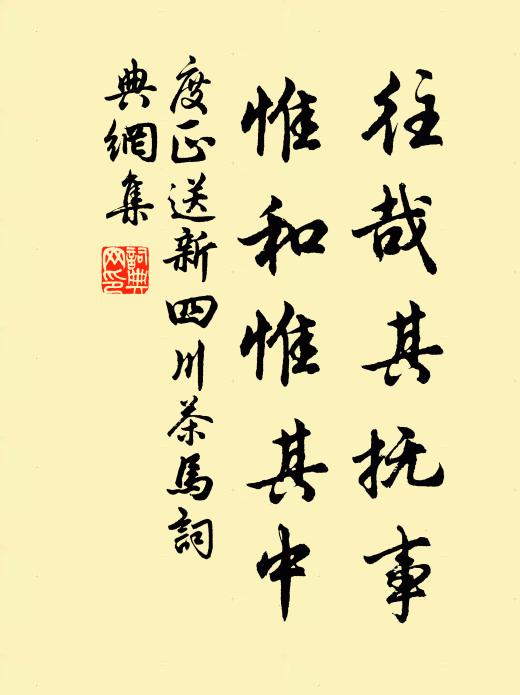 往哉其抚事
惟和惟其中
度正送新四川茶馬詞
典網集
詞典
网印